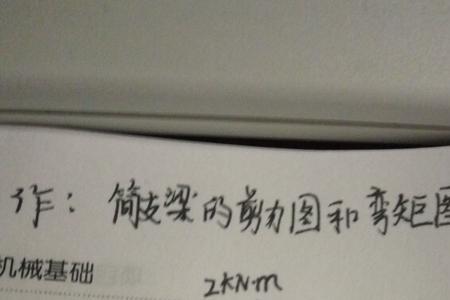 作：简支梁的剪力图和弯矩图
机械基础
2KN·m